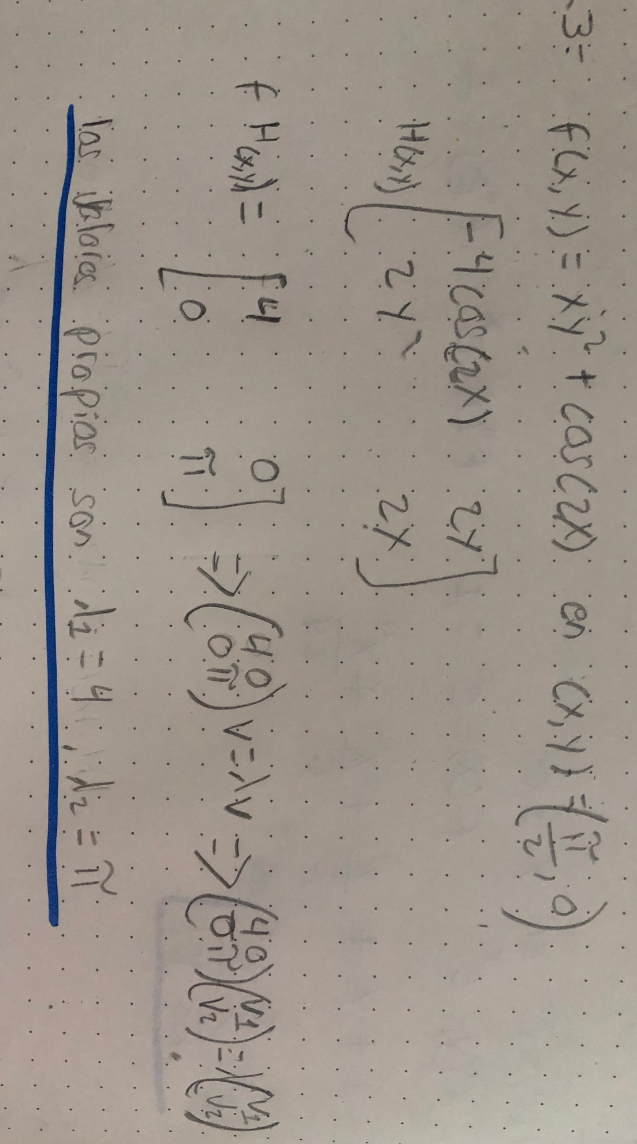 .3= f(x,y) = xy² + cos(2x) en (x,y) = (π/2, 0)
H(x,y) [-4cos(2x) 2y
2y 2x]
f H(x,y) = [4 0
0 π] => (4 0
0 π) v = λv => (4 0
0 π)(v1
v2) = λ(v1
v2)
los valores propios son λ1 = 4, λ2 = π